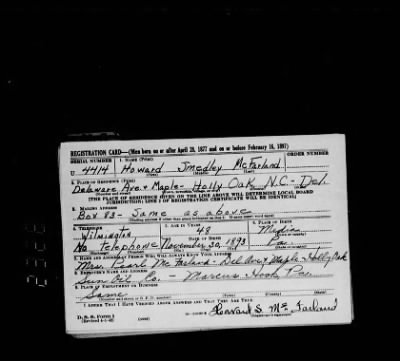 REGISTRATION CARD—(Men born on or after April 28, 1877 and on or before February 16, 1897)
SERIAL NUMBER 1. NAME (Print) ORDER NUMBER
U 4414 Howard Smedley McFarland
(First) (Middle) (Last)
2. PLACE OF RESIDENCE (Print)
Delaware Ave. & Maple - Holly Oak N.C. - Del.
[THE PLACE OF RESIDENCE GIVEN ON THE LINE ABOVE WILL DETERMINE LOCAL BOARD
JURISDICTION; LINE 2 OF REGISTRATION CERTIFICATE WILL BE IDENTICAL]
3. MAILING ADDRESS
Box 83 - Same as above
4. TELEPHONE 5. AGE IN YEARS 6. PLACE OF BIRTH
Wilmington 48 Media
No Telephone November 30, 1893 Pa.
7. NAME AND ADDRESS OF PERSON WHO WILL ALWAYS KNOW YOUR ADDRESS
Mrs. Pearl McFarland - Del Ave & Maple - Holly Oak
8. EMPLOYER'S NAME AND ADDRESS
Sun Oil Co. - Marcus Hook, Pa.
9. PLACE OF EMPLOYMENT OR BUSINESS
Same
I AFFIRM THAT I HAVE VERIFIED ABOVE ANSWERS AND THAT THEY ARE TRUE.
D. S. S. Form 1
Howard S. McFarland